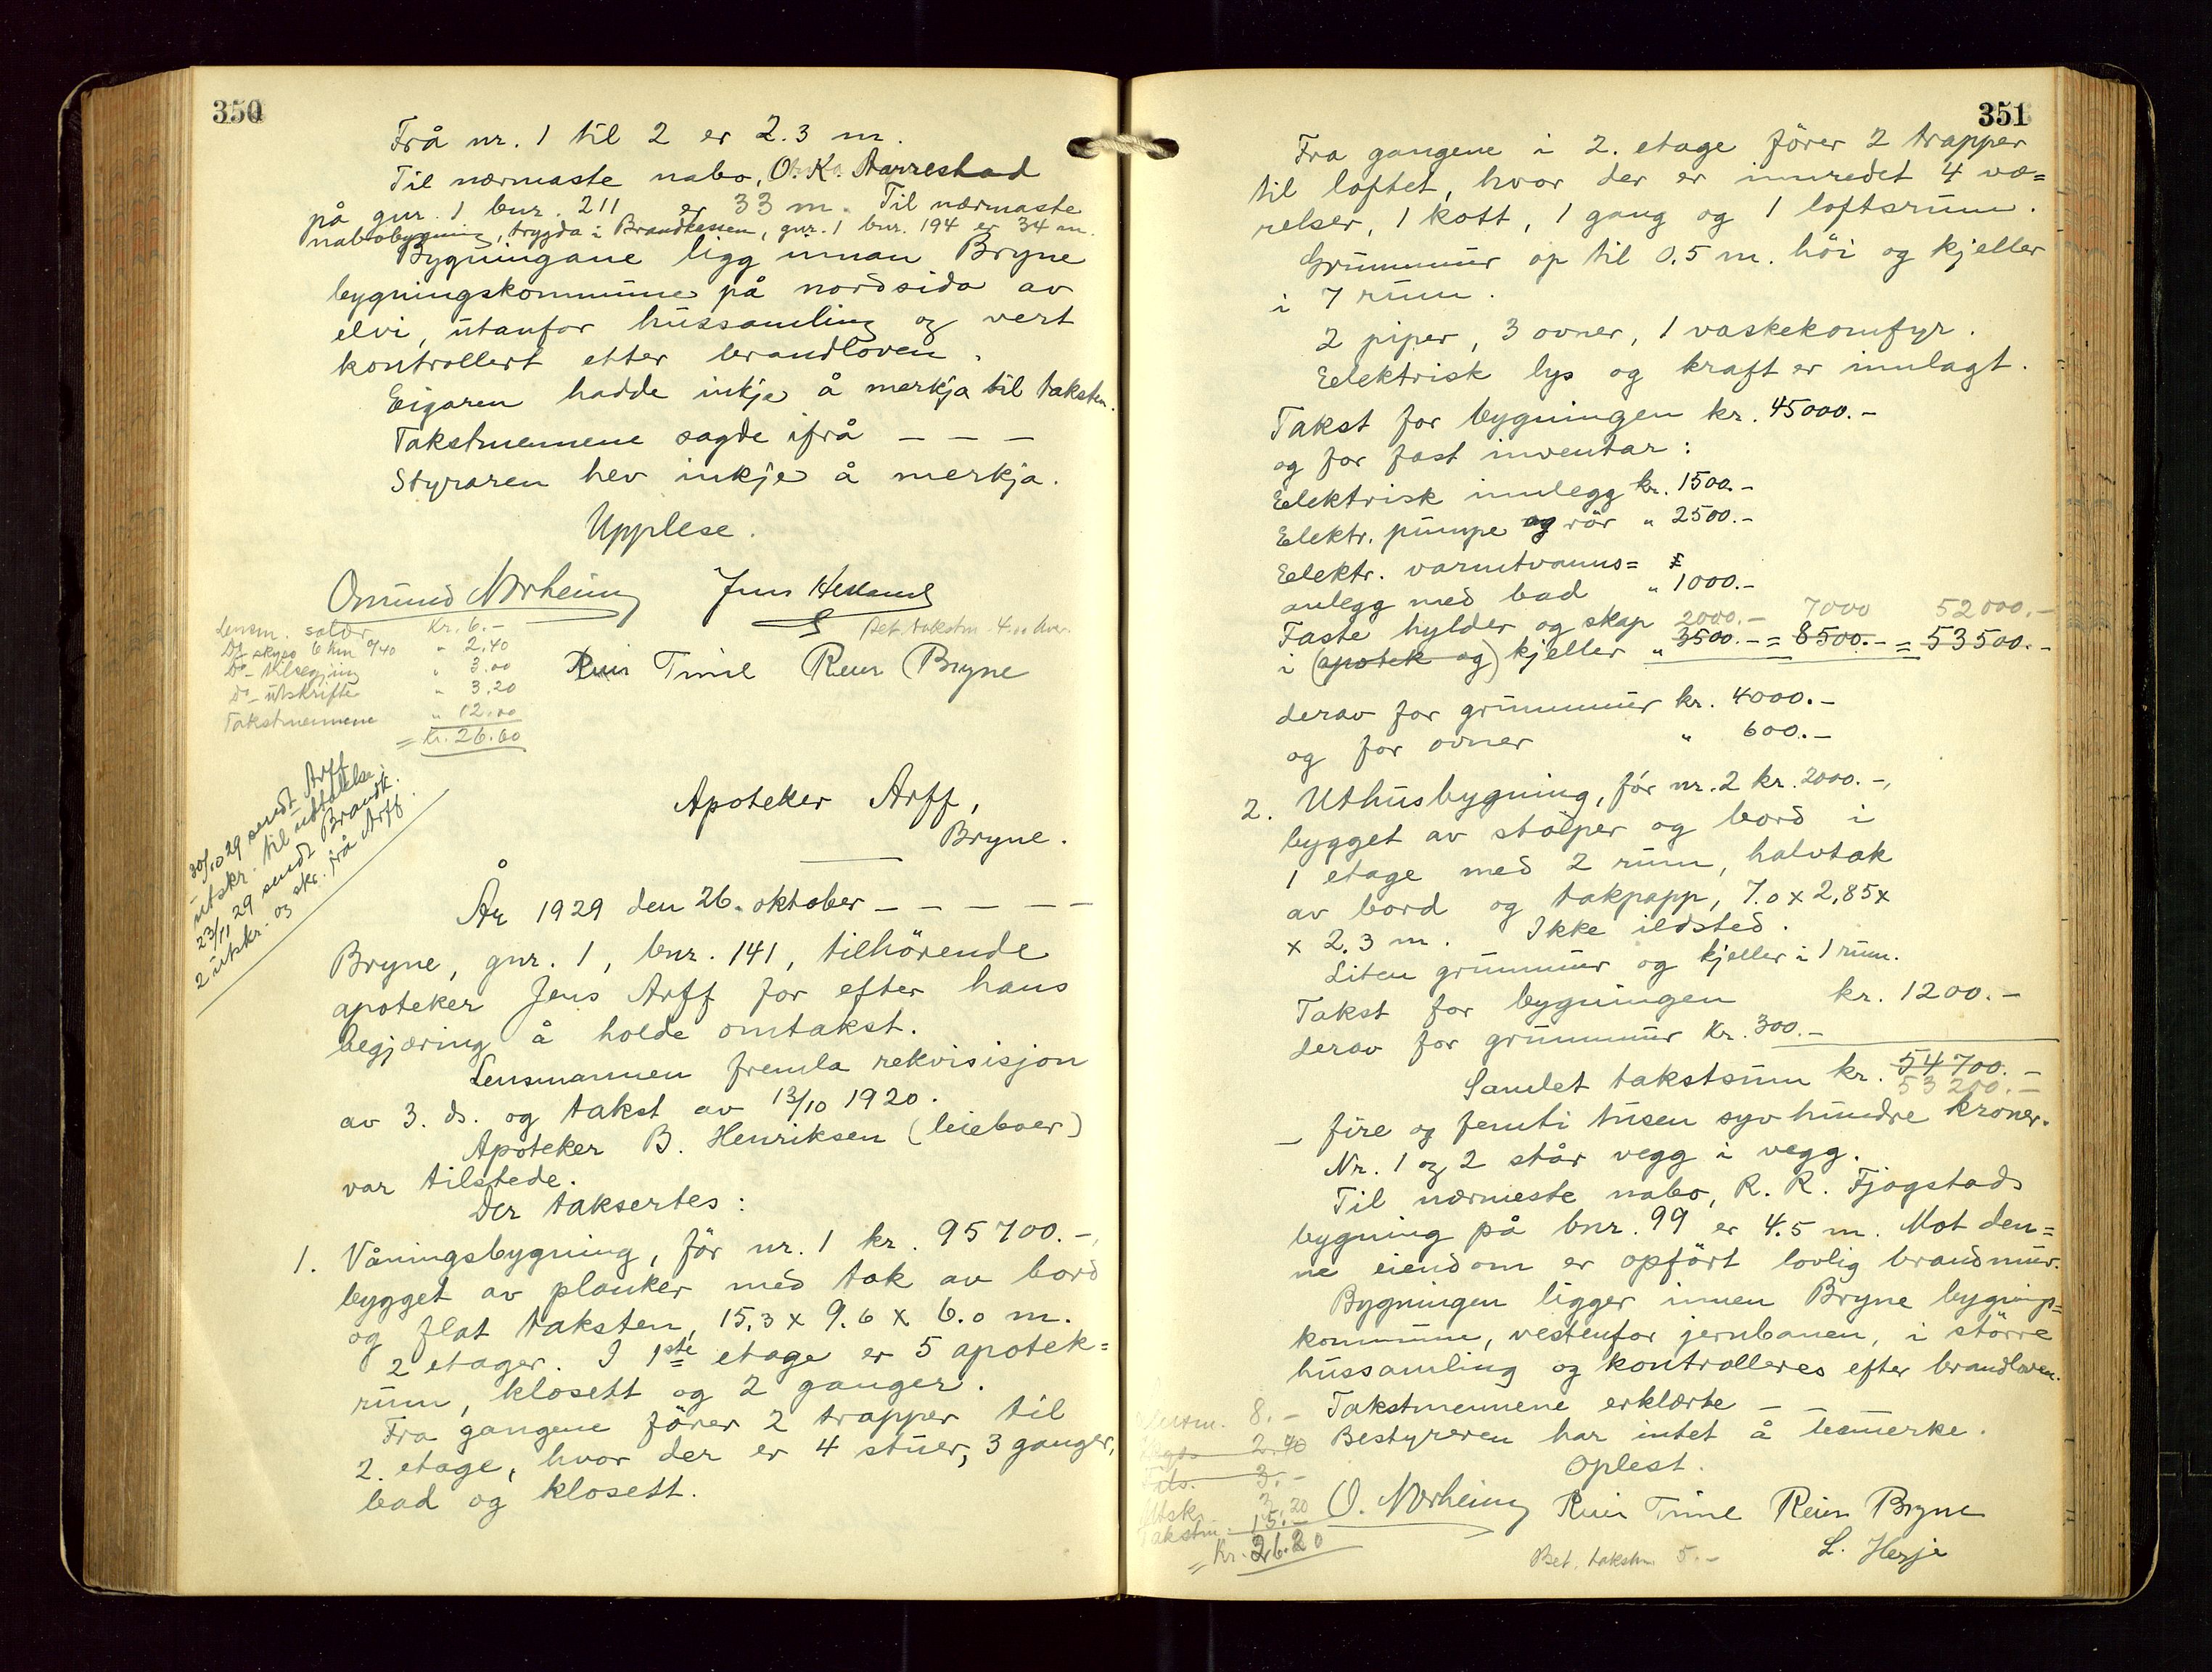 350
Frå nr. 1 til 2 er 2.3 m.
Til nærmaste nabo, O. K. Aarrestad
på gnr. 1 bnr. 211 er 33 m. Til nærmaste
nabobygning, trygda i Brandkassen, gnr. 1 bnr. 194 er 34 m.
Bygningane ligg innan Bryne
bygningskommune på nordsida av
elvi, utanfor hussamling og vert
kontrollert etter brandloven.
Eigaren hadde inkje å merkja til taksten.
Takstmennene sagde ifrå – – –
Styraren hev inkje å merkja.
Upplese.
Omund Norheim Jens Helland
Bet. takstm. 4.00 kver.
Rein Tinil Rein Bryne
Lensm. salær kr. 6.–
Do skyss 6 km á/40 " 2.40
Do – tilsegjing " 3.00
Do – utskrifte " 3.20
Takstmennene " 12.00
= Kr. 26.60
30/10 29 sendt Arff
utskr. til uttalelse.
23/11 29 sendt Brandk.
2 utskr. og skr. frå Arff.
Apoteker Arff,
Bryne.
År 1929 den 26. oktober – – – – –
Bryne, gnr. 1, bnr. 141, tilhörende
apoteker Jens Arff for efter hans
begjæring å holde omtakst.
Lensmannen fremla rekvisisjon
av 3. ds. og takst av 13/10 1920.
Apoteker B. Henriksen (leieboer)
var tilstede.
Der taksertes:
1. Våningsbygning, för nr. 1 kr. 95700.–,
bygget av planker med tak av bord
og flat taksten, 15.3 x 9.6 x 6.0 m.
2 etager. I 1ste etage er 5 apotek=
rum, klosett og 2 ganger.
Fra gangene förer 2 trapper til
2. etage, hvor der er 4 stuer, 3 ganger,
bad og klosett.
351
Fra gangene i 2. etage förer 2 trapper
til loftet, hvor der er innredet 4 væ=
relser, 1 kott, 1 gang og 1 loftsrum.
Grunnmur op til 0.5 m. höi og kjeller
i 7 rum.
2 piper, 3 ovner, 1 vaskekomfyr.
Eelektrisk lys og kraft er innlagt.
Takst for bygningen kr. 45000.–
og for fast inventar:
Eelektrisk innlegg kr. 1500.–
Eelektr. pumpe og rör " 2500.–
Eelektr. varmtvanns=
anlegg med bad " 1000.–
Faste hylder og skap 2000.– 7000 52000.–
i (apotek og) kjeller " 3500.– = 8500.– = 53500.–
derav for grunnmur kr. 4000.–
og for ovner " 600.–
2. Uthusbygning, för nr. 2 kr. 2000.–,
bygget av stolper og bord i
1 etage med 2 rum, halvtak
av bord og takpapp, 7.0 x 2,85 x
x 2.3 m. Ikke ildsted.
Liten grunnmur og kjeller i 1 rum.
Takst for bygningen kr. 1200.–
derav for grunnmur Kr. 300.–
Samlet takstsum kr. 54700.–
53200.–
– fire og femti tusen syv hundre kroner.
Nr. 1 og 2 står vegg i vegg.
Til nærmeste nabo, R. R. Fjogstads
bygning på bnr. 99 er 4.5 m. Mot den=
ne eiendom er opfört lovlig brandmur.
Bygningen ligger innen Bryne bygnings=
kommune, vestenfor jernbanen, i större
hussamling og kontrolleres efter brandloven.
Takstmennene erklærte – –
Bestyreren har intet å bemerke.
Oplest.
O. Norheim Rein Tinil Rein Bryne
L. Herje
Lensm. 8.–
2.40
Tils. 3.–
Utskr. 3.20
Takstm. 15.–
= Kr. 26.20
Bet. takstm 5.–